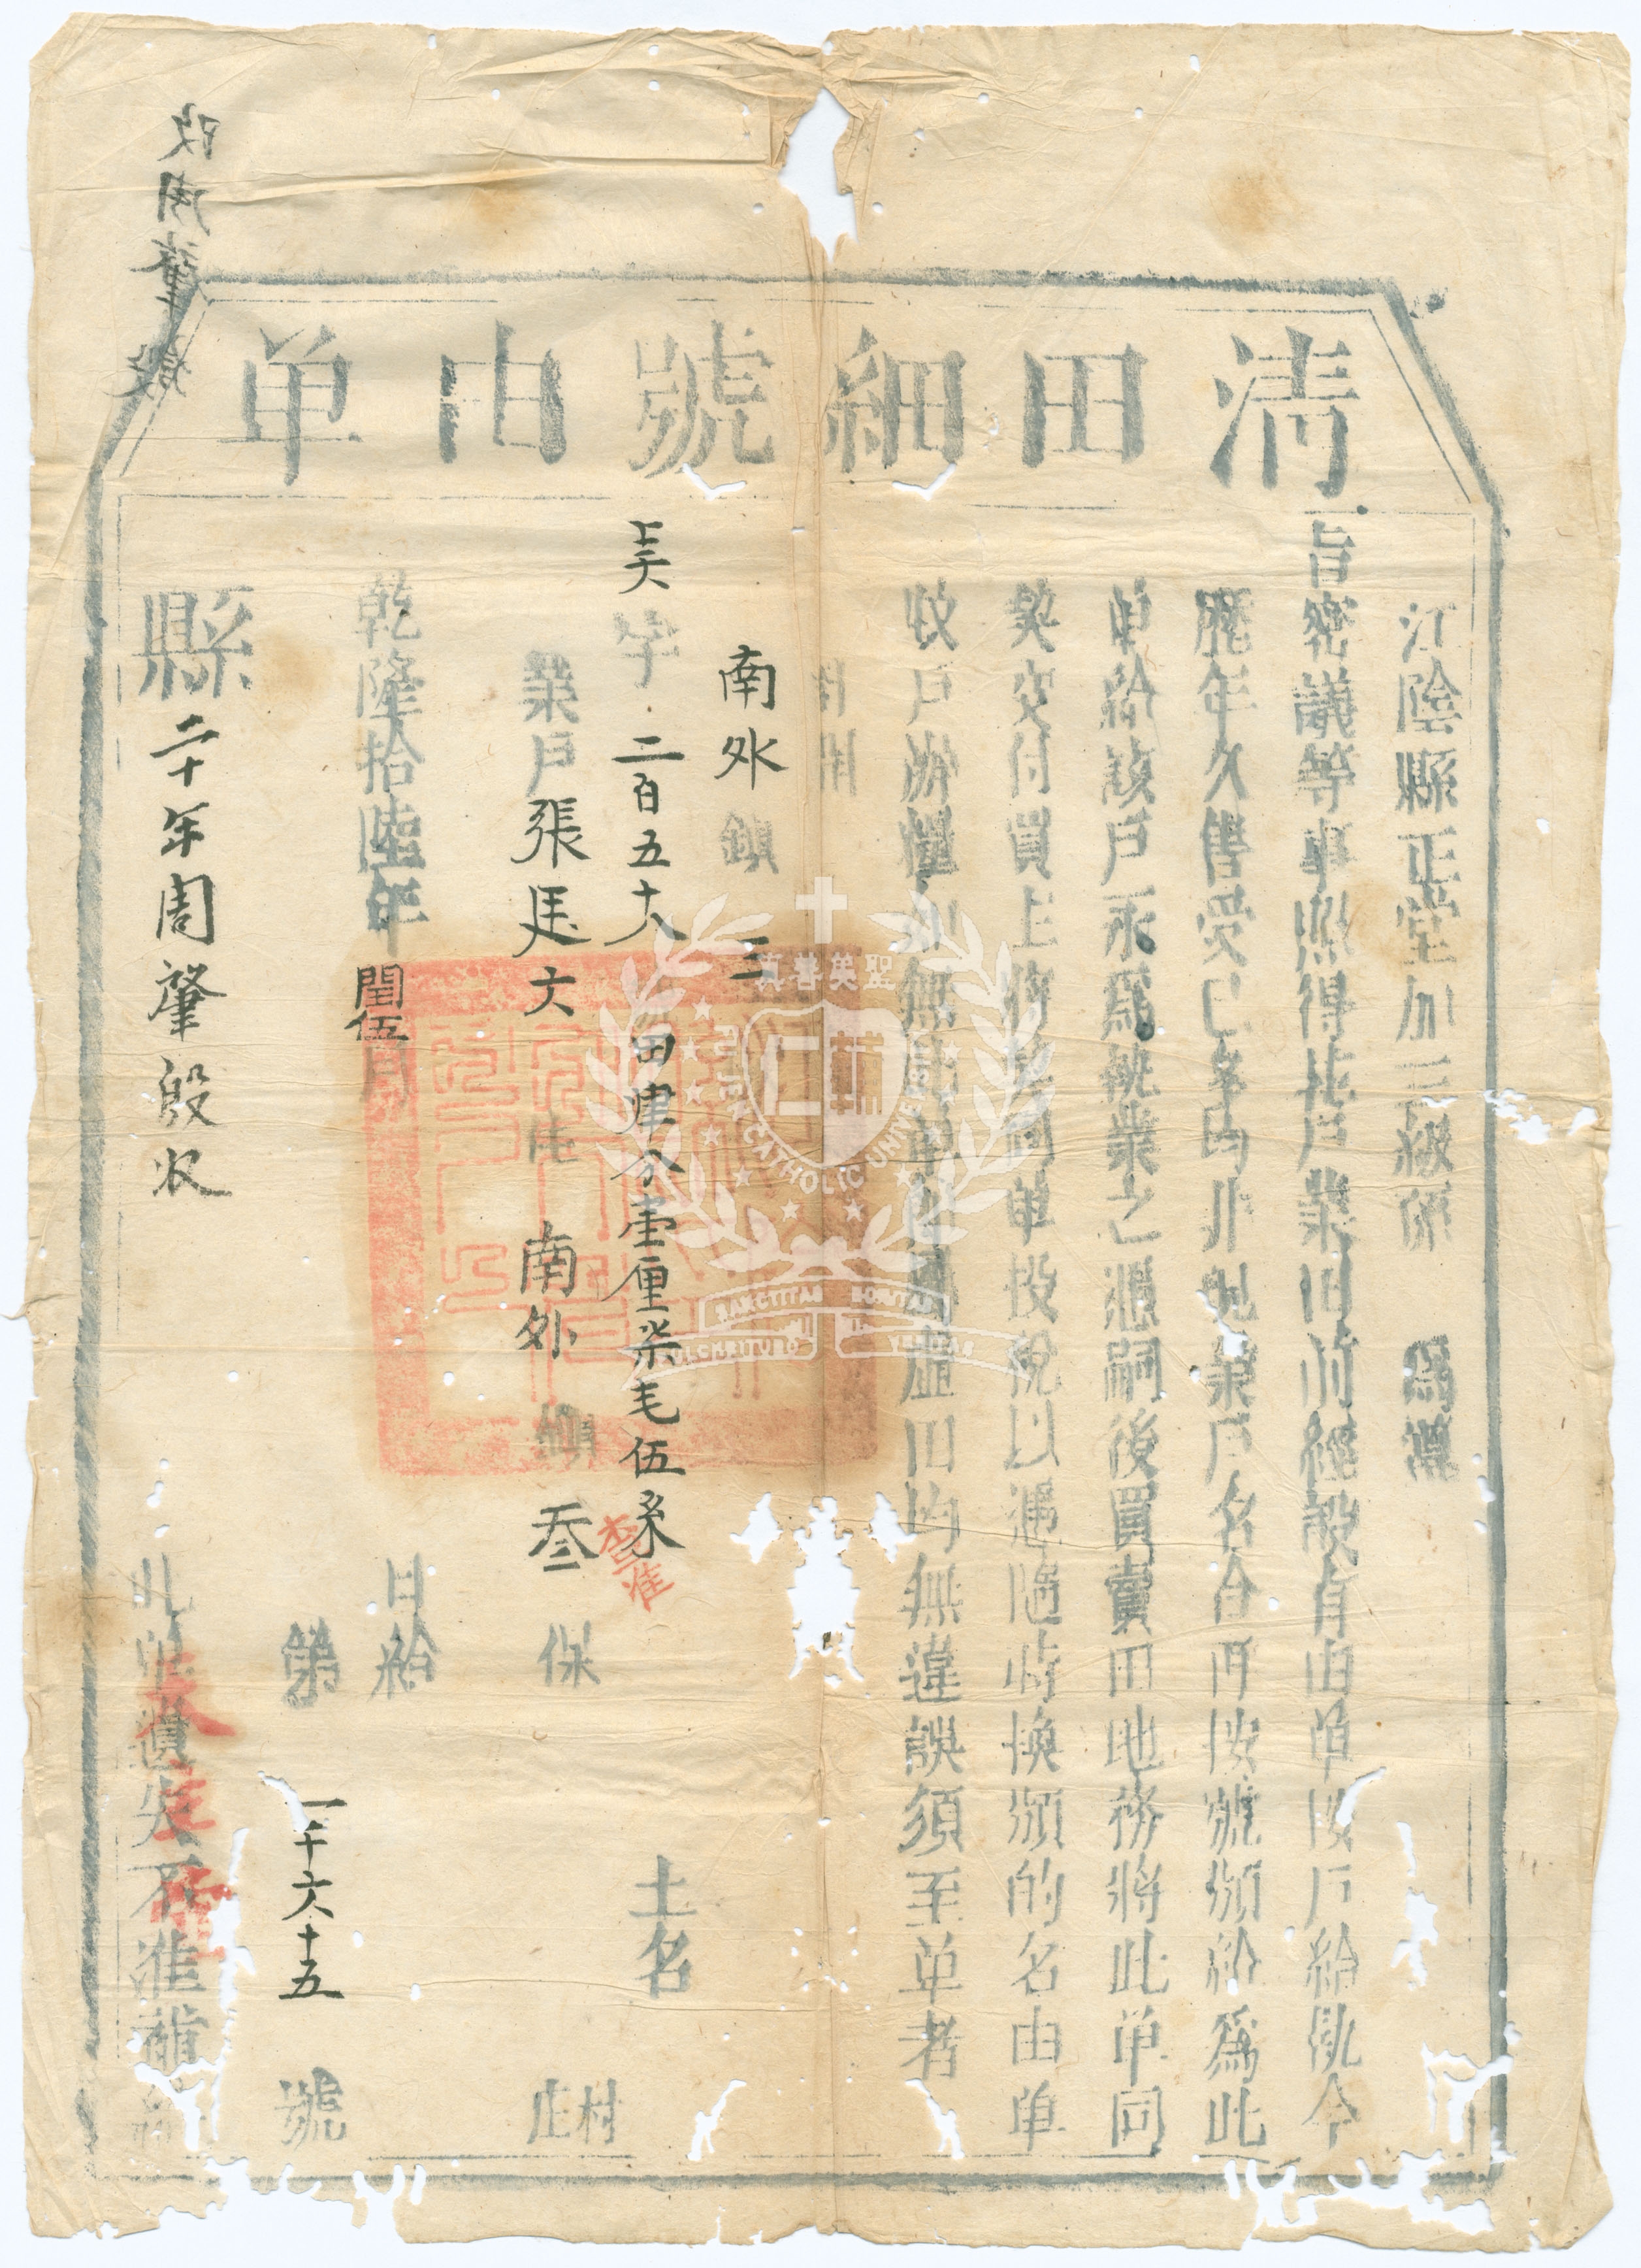 清田細號由单
江陰縣正堂加三級 為
旨密議等事照得花戶業田前經設有由单按戶給執今
歷年久售受已多內非現業戶名合再按號頒給為此
单給該戶永為執業之憑嗣後買賣田地務將此单同
契交付買主將 单投稅以憑隨時換頒的名由单
收戶辦糧如無此单 虛田均無違誤須至单者
計開
南外鎮 三
字 二百五十八 田 分壹厘柒毛伍糸 土名
查准
業戶張廷六 住 南外鎮 叁 保 村庄
乾隆拾陸年閏伍月 日給
第一千六十五號
縣
二十年周肇殷收
此单遺失不准補給
改周肇殷
真善美聖
FU JEN CATHOLIC UNIVERSITY
SANCTITAS BONITAS
PULCHRITUDO VERITAS